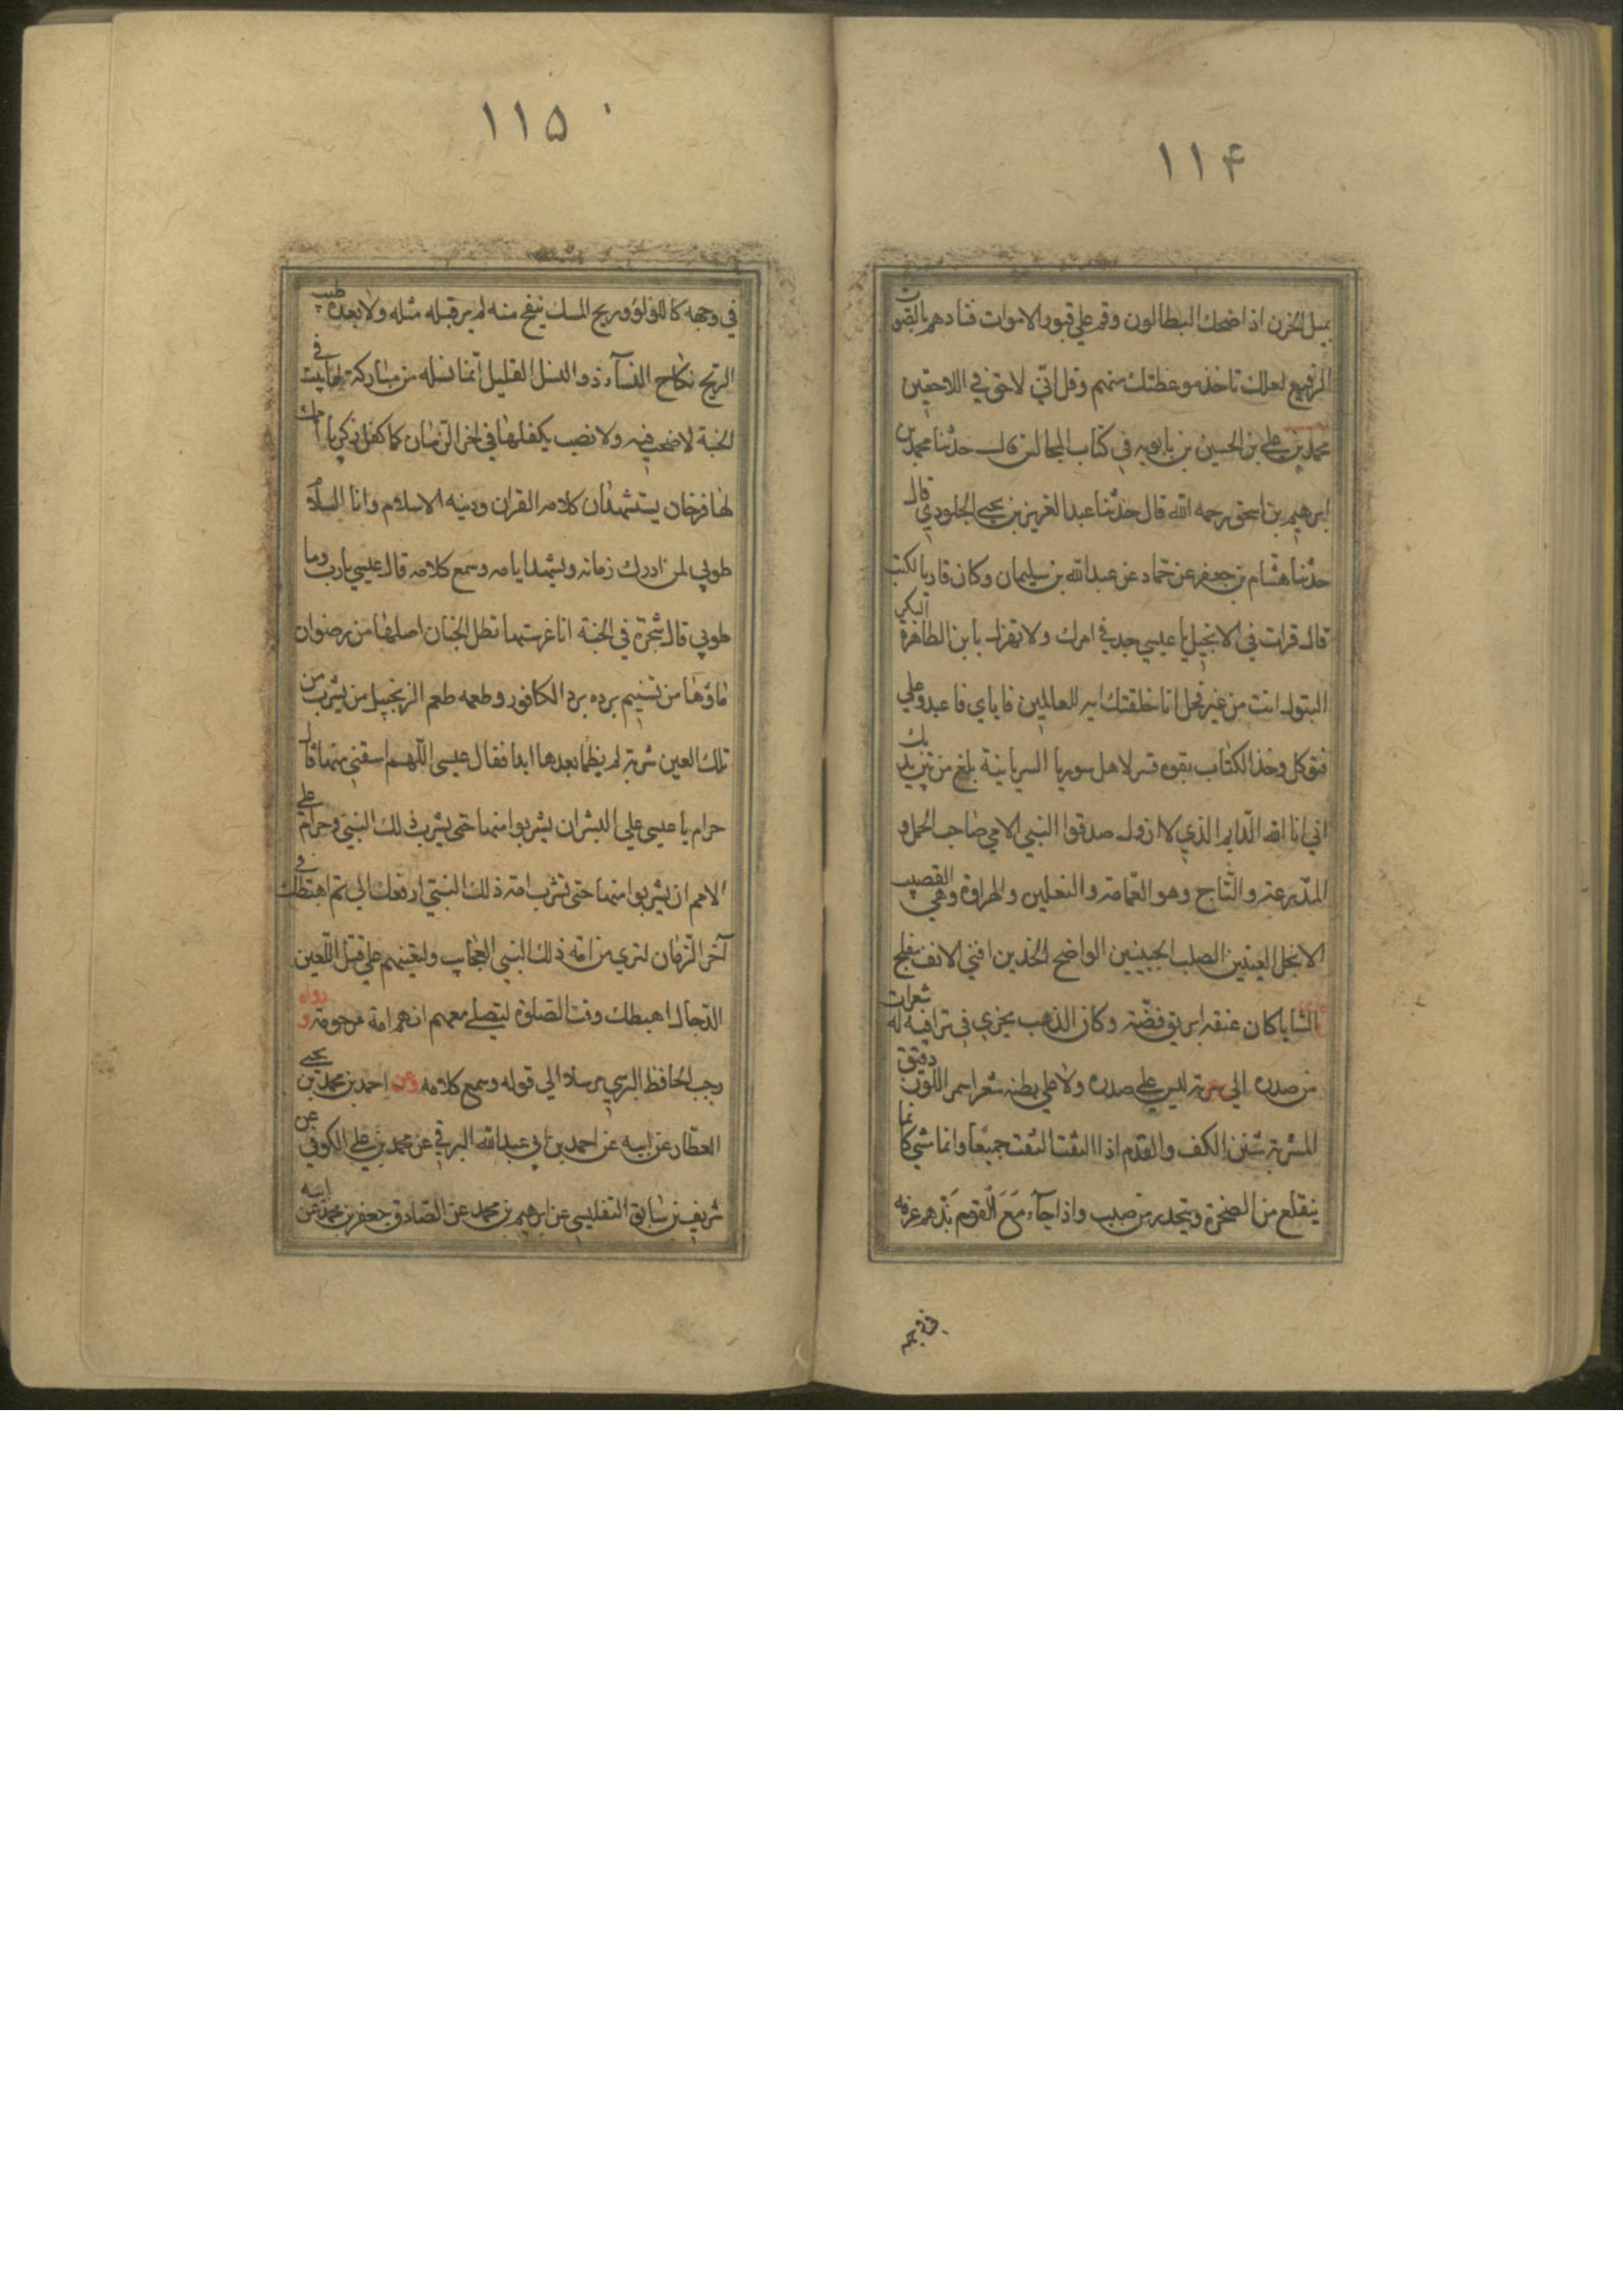 ۱۱۴
بميل الحزن اذا ضحك البطالون وقم علي قبور الاموات فنادهم بالصوت
الرفيع لعلك تاخذ موعظتك منهم وقل اني لاحق في اللاحقين
محمد بن علي بن الحسين بن بابويه في كتاب المجالس قال حدثنا محمد بن
ابرهيم بن اسحق رحمه الله قال حدثنا عبد العزيز بن يحيي الجلودي قال
حدثنا هشام بن جعفر عن حماد عن عبد الله بن سليمان وكان قاريا لكتب
قال قرات في الانجيل يا عيسي جد في امرك ولا تهزل يا بن الطاهرة البكر
البتول انت من غير فحل انا خلقتك اية للعالمين فاياي فاعبد وعلي
فتوكل وخذ الكتاب بقوه فسر لاهل سوريا السريانية بلغ من بين يديك
اني انا الله الدايم الذي لا ازول صدقوا النبي الامي صاحب الجمل و
المدرعة والتاج وهو العمامة والنعلين والهراوة وهي القضيب
الانجل العينين الصلب الجبينين الواضح الخدين اقني الانف مفلج
الثنايا كان عنقه ابريق فضة وكان الذهب يجري في تراقيه له شعرات
من صدره الي سرته ليس علي صدره ولا علي بطنه شعر اسمر اللون دقيق
المسربة شثن الكف والقدم اذا التفت التفت جميعا واذا مشي كانما
ينقلع من الصخرة وينحدر من صبب واذا جآء مع القوم بذهم عرقه
في وجهه
۱۱۵
في وجهه كاللؤلؤ وريح المسك ينفح منه لم ير قبله مثله ولا بعده طيب
الريح نكاح النسآء ذو النسل القليل انما نسله من مباركة لها بيت في
الجنة لا صخب فيه ولا نصب يكفلها في اخر الزمان كما كفل زكريا امك
لها فرخان يستشهدان كلامه القران ودينه الاسلام وانا السلام
طوبي لمن ادرك زمانه وشهد ايامه وسمع كلامه قال عيسي يا رب وما
طوبي قال شجرة في الجنة انا غرستها تظل الجنان اصلها من رضوان
ماؤها من تسنيم برده برد الكافور وطعمه طعم الزنجبيل من يشرب من
تلك العين شربة لم يظما بعدها ابدا فقال عيسي اللهم اسقني منها قال
حرام يا عيسي علي البشر ان يشربوا منها حتي يشرب ذلك النبي وحرام علي
الامم ان يشربوا منها حتي تشرب امة ذلك النبي ارفعك الي ثم اهبطك في
آخر الزمان لتري من امة ذلك النبي العجايب ولتعينهم علي قتل اللعين
الدجال اهبطك وقت الصلوة لتصلي معهم انهم امة مرحومة و رواه
رجب الحافظ البرسي مرسلا الي قوله وسمع كلامه وعن احمد بن محمد بن يحيي
العطار عن ابيه عن احمد بن ابي عبد الله البرقي عن محمد بن علي الكوفي عن
شريف بن سابق التفليسي عن ابرهيم بن محمد عن الصادق جعفر بن محمد عن ابيه